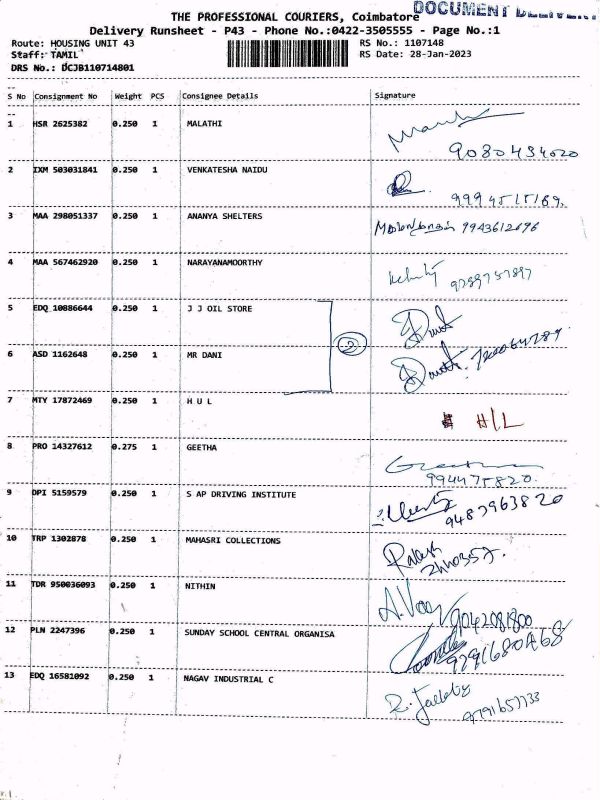 DOCUMENT DELIVERY
THE PROFESSIONAL COURIERS, Coimbatore
Delivery Runsheet - P43 - Phone No.:0422-3505555 - Page No.:1
Route: HOUSING UNIT 43
RS No.: 1107148
Staff: TAMIL
RS Date: 28-Jan-2023
DRS No.: DCJB110714801
S No Consignment No Weight PCS Consignee Details Signature
1 HSR 2625382 0.250 1 MALATHI
9080434020
2 IXM 503031841 0.250 1 VENKATESHA NAIDU
3 MAA 298051337 0.250 1 ANANYA SHELTERS
9943612696
4 MAA 567462920 0.250 1 NARAYANAMOORTHY
5 EDQ 10886644 0.250 1 J J OIL STORE
2
6 ASD 1162648 0.250 1 MR DANI
7 MTY 17872469 0.250 1 H U L
H/L
8 PRO 14327612 0.275 1 GEETHA
9944775820
9 DPI 5159579 0.250 1 S AP DRIVING INSTITUTE
9487963820
10 TRP 1302878 0.250 1 MAHASRI COLLECTIONS
11 TDR 950036093 0.250 1 NITHIN
9042081800
12 PLN 2247396 0.250 1 SUNDAY SCHOOL CENTRAL ORGANISA
13 EDQ 16581092 0.250 1 NAGAV INDUSTRIAL C